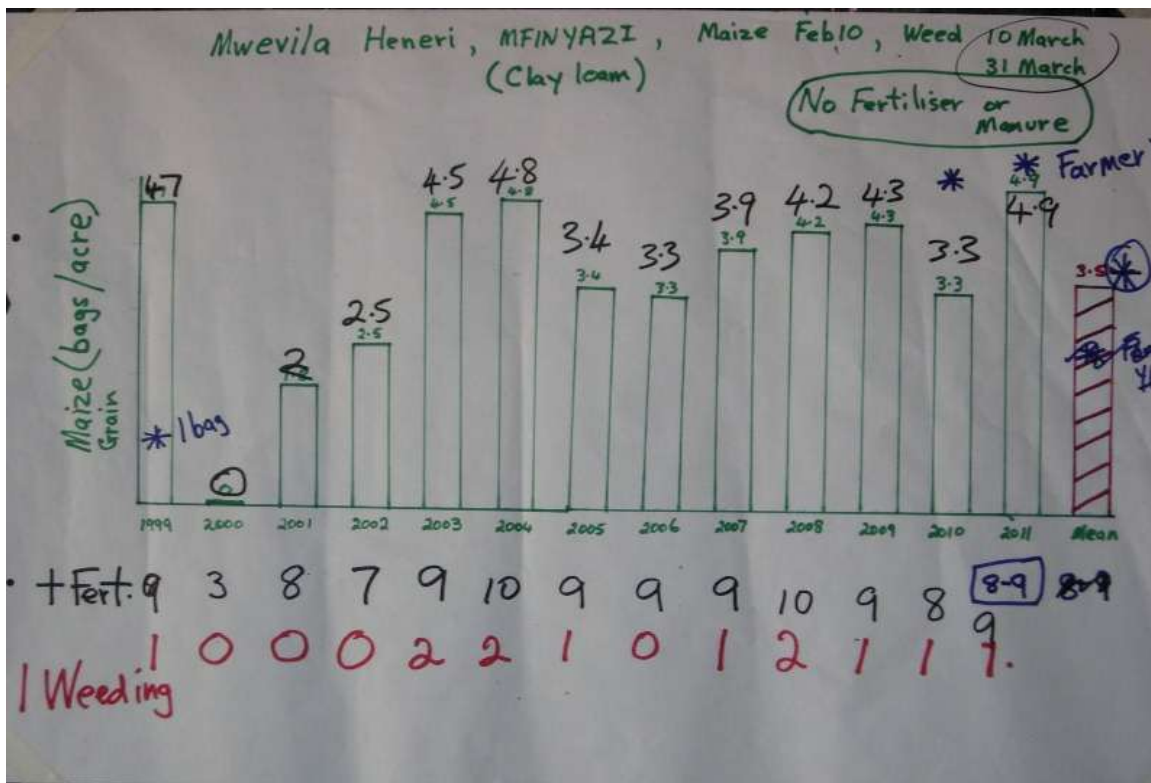 Mwevila Heneri, MFINYAZI, Maize Feb10, Weed 10 March
31 March
(Clay loam)
No Fertiliser or
Manure
Maize (bags/acre)
Grain
* Farmer
4.7 2 2.5 4.5 4.8 3.4 3.3 3.9 4.2 4.3 3.3 4.9 3.5
2.5 4.5 4.8 3.4 3.3 3.9 4.2 4.3 3.3 4.9
* 1 bag
0
1999 2000 2001 2002 2003 2004 2005 2006 2007 2008 2009 2010 2011 Mean
+ Fert. 9 3 8 7 9 10 9 9 9 10 9 8 8-9 8-9
9
1 0 0 0 2 2 1 0 1 2 1 1 1.
1 Weeding